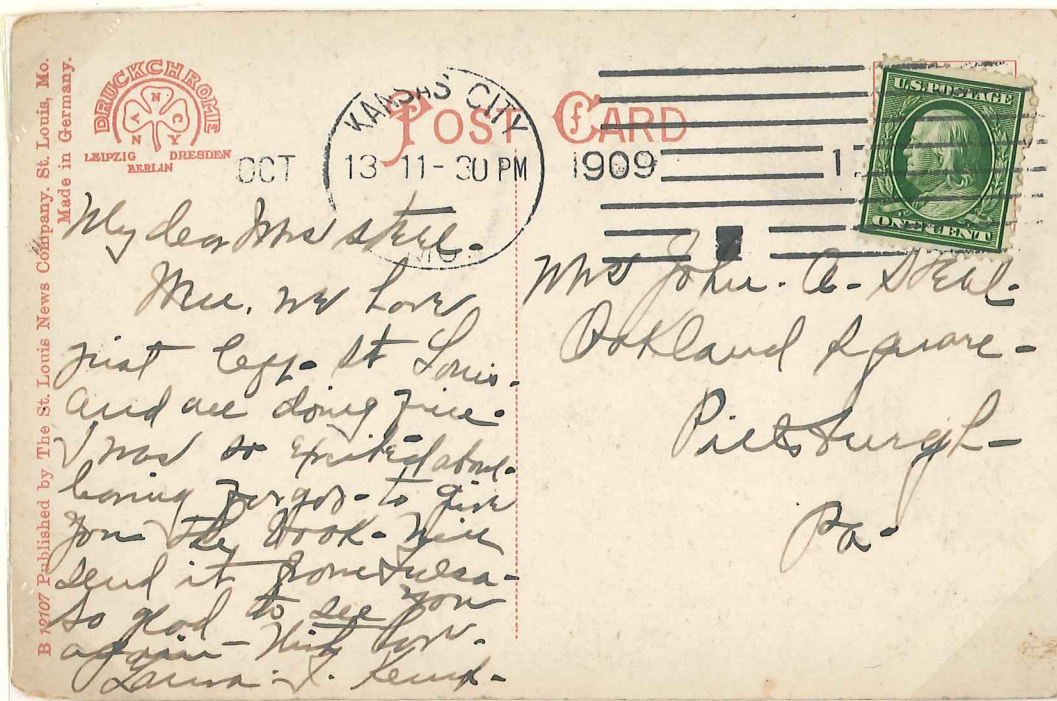 B 12107 Published by The St. Louis News Company. St. Louis, Mo.
Made in Germany.
DRUCKCHROME
N A C Y N
LEIPZIG DRESDEN
BERLIN
POST CARD
KANSAS CITY
OCT 13 11-30 PM 1909 1
MO.
U.S. POSTAGE
ONE CENT
My dear Mrs Steel-
we have
just left St Louis-
and are doing fine-
I was so excited about
leaving forgot to give
you the book- will
send it from Tulsa-
so good to see you
again- With love-
Laura J. Kemp-
Mrs John. A. Steel-
Oakland Square-
Pittsburgh-
Pa-